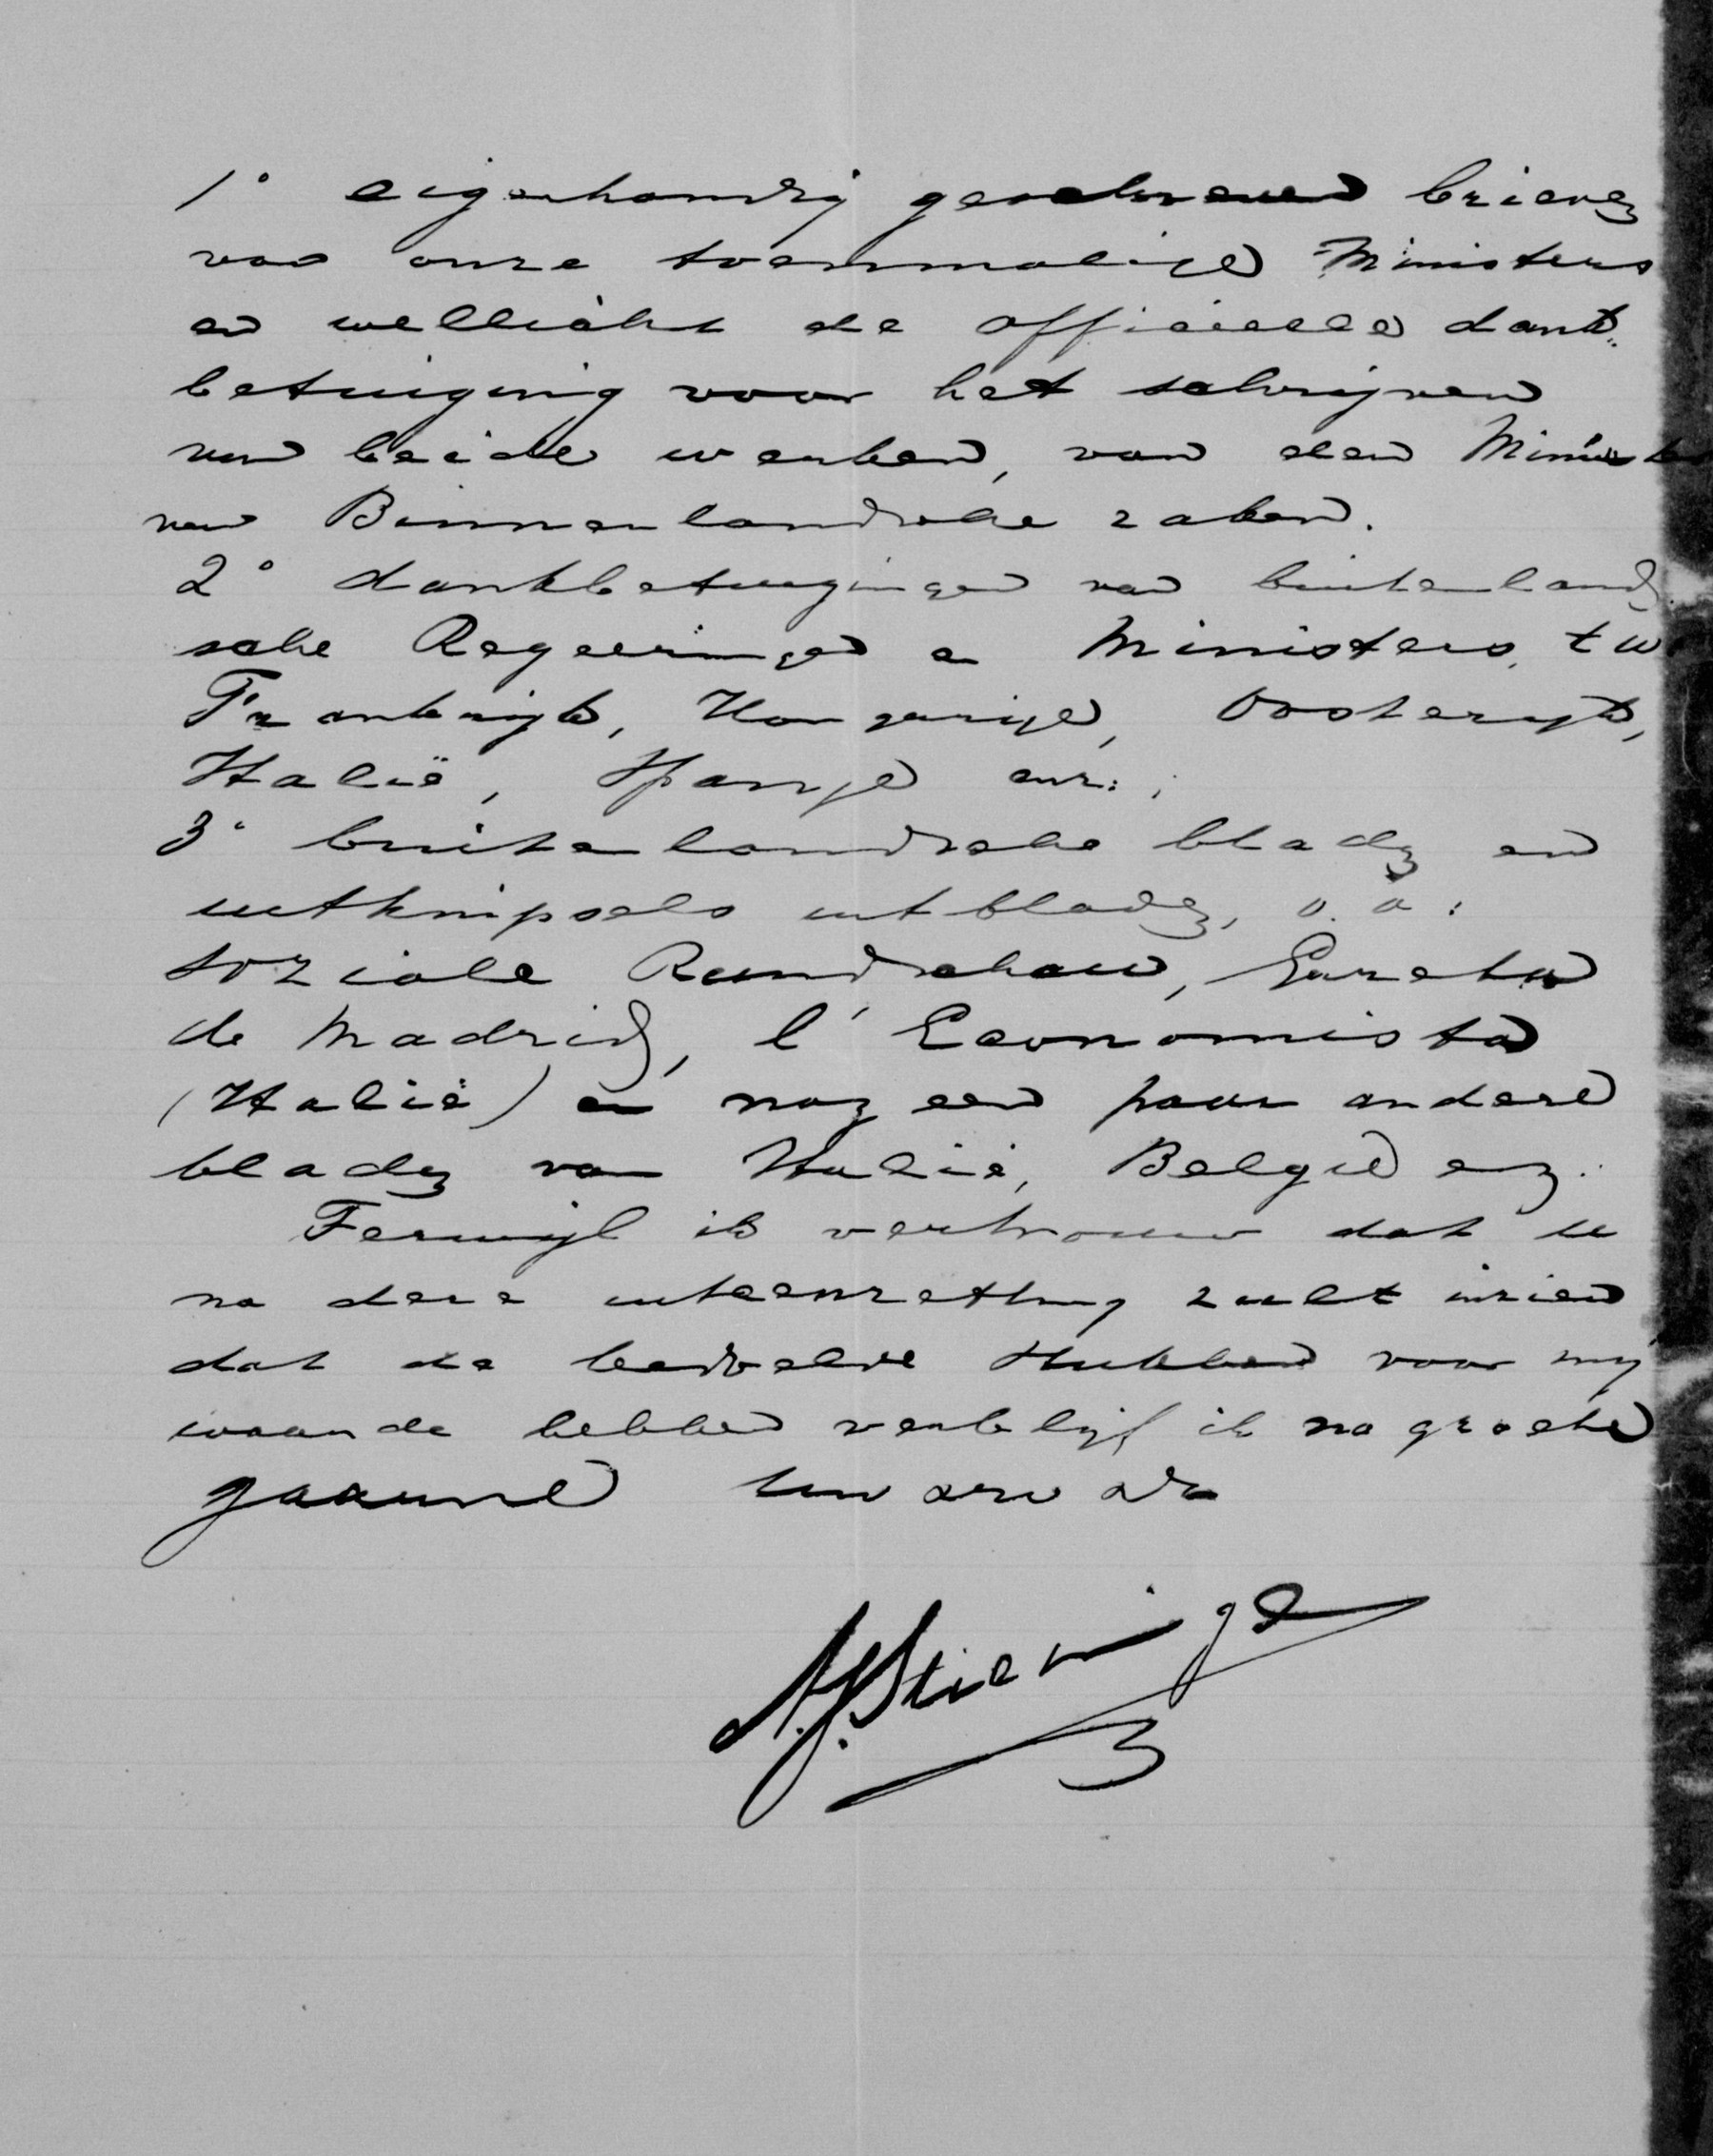 1° eigenhandig geschreven brieven
van onze toenmalige Ministers
en wellicht de officieele dank„
betuiging voor het schrijven
van beide werken, van den Minister
van Binnenlandsche zaken.
2° dankbetuigingen van buitenland„
sche Regeeringen en Ministers, t w
Frankrijk, Hongarije, Oostenrijk,
Italië, Spanje enz:;
3° buitenlandsche bladen en
uitknipsels uit bladen, o. a:
Soziale Rundschau, Gaceta
de Madrid, l'Economista
(Italië) en nog een paar andere
bladen van Italië, België enz.
Terwijl ik vertrouw dat u
na deze uiteenzetting zult inzien
dat de bedoelde stukken voor mij
waarde hebben verblijf ik na groete
gaarne Uw dw dr
A.J. Stieninga